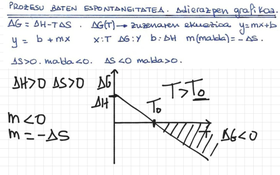 PROZESU BATEN ESPONTANEITATEA. Adierazpen grafikoa.
ΔG = ΔH - TΔS. ΔG(T) → zuzenaren ekuazioa y=mx+b
y = b + mx   x:T   ΔG:y   b:ΔH   m(malda) = -ΔS.
ΔS>0. malda<0.   ΔS<0 malda>0.
ΔH>0 ΔS>0
ΔG
T>T₀
ΔH
T₀
m<0
T
ΔG<0
m = -ΔS